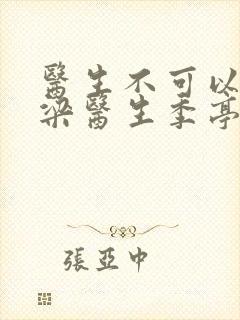 醫生不可以
梁醫生季亭
張亞中